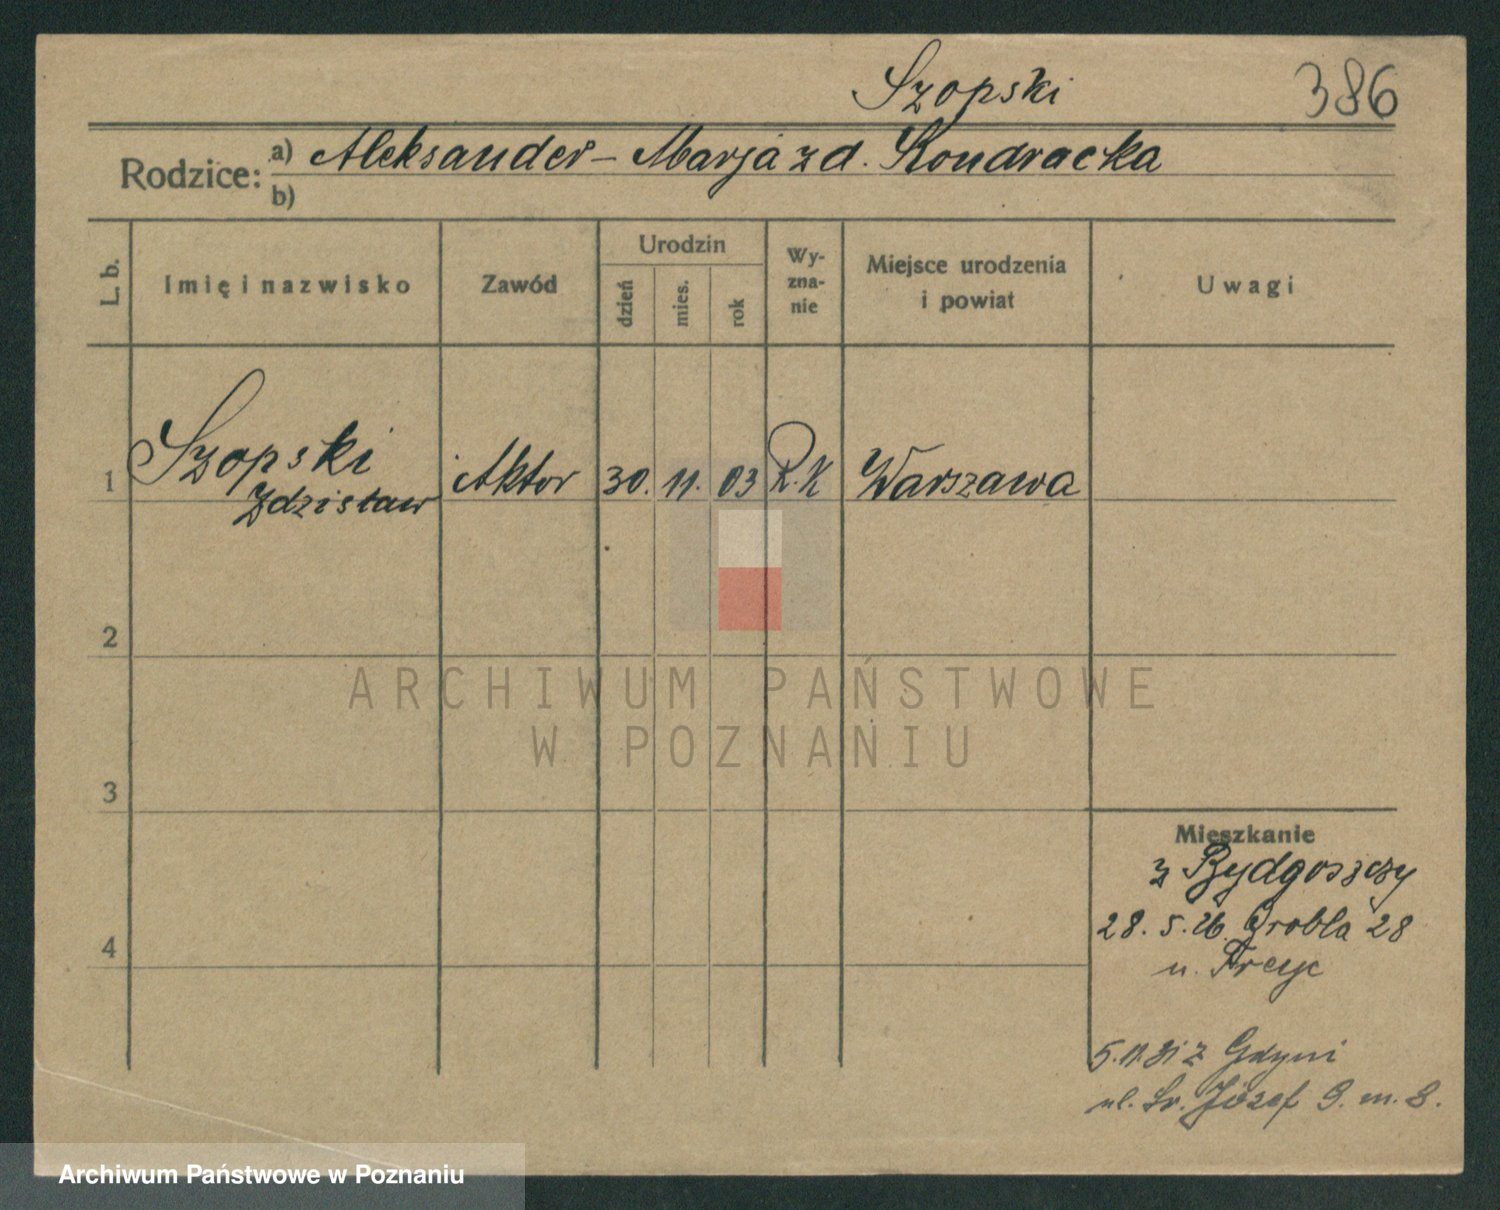 Szopski
386
Rodzice: a) Aleksander – Marja z d. Kondracka
b)
L. b.
Imię i nazwisko
Zawód
Urodzin
dzień
mies.
rok
Wy-
zna-
nie
Miejsce urodzenia
i powiat
Uwagi
1 Szopski Aktor 30. 11. 03 R.K Warszawa
Zdzisław
2
3
4
ARCHIWUM PAŃSTWOWE
W POZNANIU
Mieszkanie
z Bydgoszczy
28. 5. 26. Grobla 28
u. Freyc
5.11.31 z Gdyni
ul. Św. Józef 9. m. 8.
Archiwum Państwowe w Poznaniu